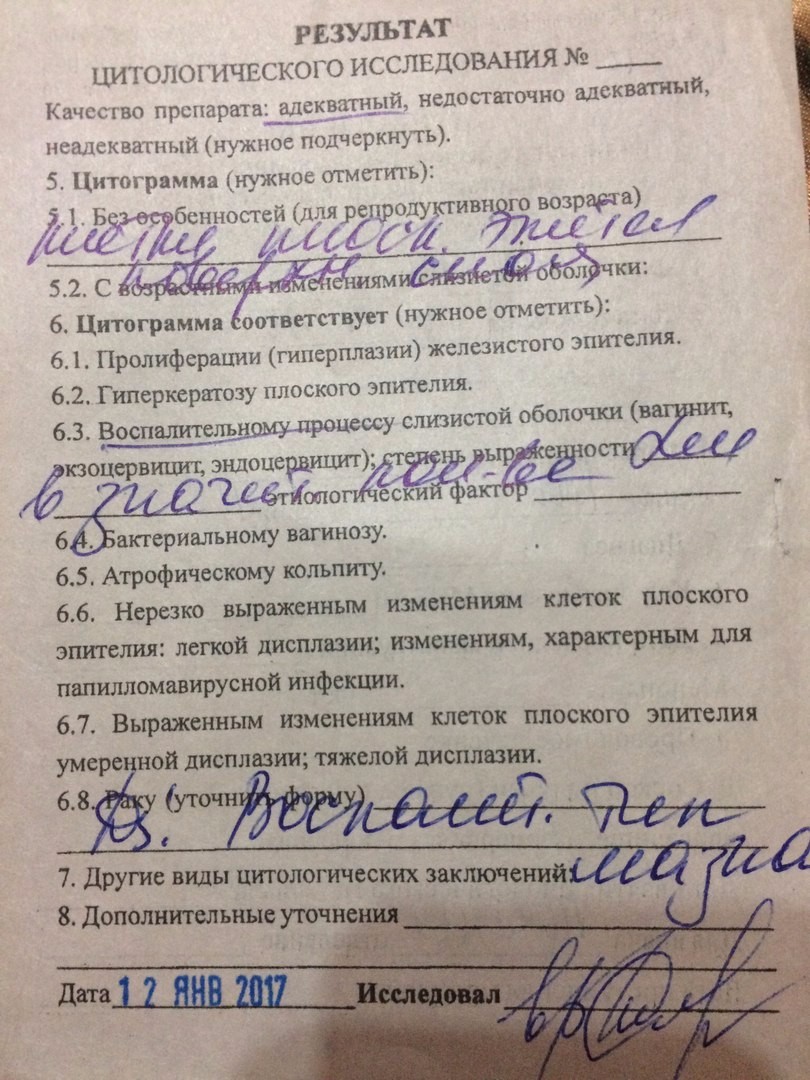 РЕЗУЛЬТАТ
ЦИТОЛОГИЧЕСКОГО ИССЛЕДОВАНИЯ № _____
Качество препарата: адекватный, недостаточно адекватный,
неадекватный (нужное подчеркнуть).
5. Цитограмма (нужное отметить):
5.1. Без особенностей (для репродуктивного возраста)
клетки плоск. эпител
поверхн. слоя
5.2. С возрастными изменениями слизистой оболочки:
6. Цитограмма соответствует (нужное отметить):
6.1. Пролиферации (гиперплазии) железистого эпителия.
6.2. Гиперкератозу плоского эпителия.
6.3. Воспалительному процессу слизистой оболочки (вагинит,
экзоцервицит, эндоцервицит); степень выраженности
в значит. кол-ве
этиологический фактор
6.4. Бактериальному вагинозу.
6.5. Атрофическому кольпиту.
6.6. Нерезко выраженным изменениям клеток плоского
эпителия: легкой дисплазии; изменениям, характерным для
папилломавирусной инфекции.
6.7. Выраженным изменениям клеток плоского эпителия
умеренной дисплазии; тяжелой дисплазии.
6.8. Раку (уточнить форму)
Воспалит. тип
7. Другие виды цитологических заключений:
мазка
8. Дополнительные уточнения
Дата 12 ЯНВ 2017 Исследовал